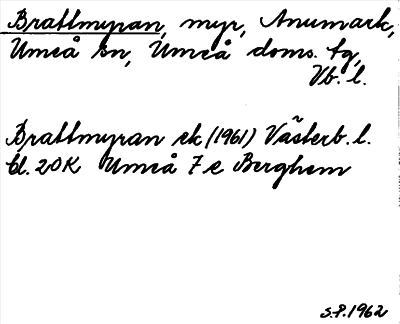 Brattmyran, myr, Anumark,
Umeå sn, Umeå doms. tg,
Vb. l.
Brattmyran ek (1961) Västerb. l.
bl. 20K Umeå 7c Berghem
S.P. 1962